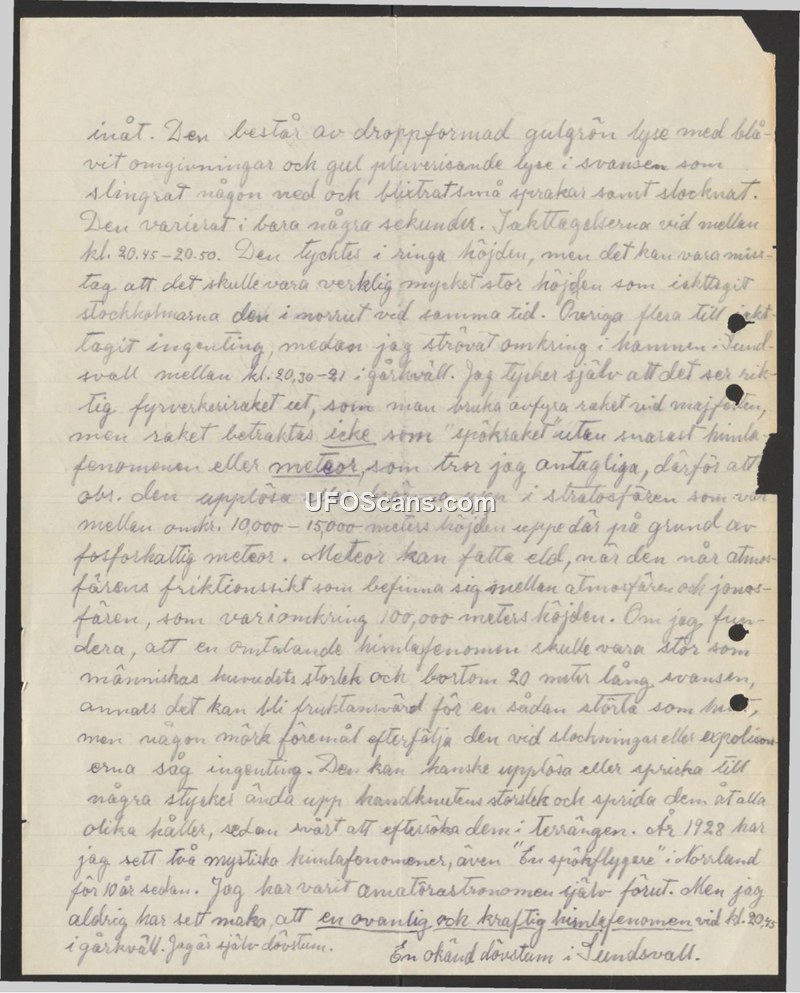 inåt. Den består av droppformad gulgrön lyse med blå-
vit omgivningar och gul pulveriserande lyse i svansen som
slingrat någon ned och blixtrat små sprakar samt slocknat.
Den varierat i bara några sekunder. Iakttagelserna vid mellan
kl. 20.45 – 20.50. Den tycktes i ringa höjden, men det kan vara miss-
tag att det skulle vara verklig mycket stor höjden som iakttagit
stockholmarna den i norrut vid samma tid. Övriga flera till iakt-
tagit ingenting, medan jag strövat omkring i hamnen i Sund-
svall mellan kl. 20,30 – 21 i gårkväll. Jag tycker själv att det ser rik-
tig fyrverkeriraket ut, som man bruka avfyra raket vid majfesten,
men raket betraktas icke som "spökraket" utan snarast himla-
fenomenen eller meteor, som tror jag antagliga, därför att
obs. den upplösa i stratosfären som var
mellan omkr. 10,000 – 15,000 meters höjden uppe där på grund av
fosforhaltig meteor. Meteor kan fatta eld, när den når atmos-
färens friktionssikt som befinna sig mellan atmosfären och jonos-
fären, som var omkring 100,000 meters höjden. Om jag fun-
dera, att en omtalande himlafenomen skulle vara stor som
människas huvudets storlek och bortom 20 meter lång svansen,
annars det kan bli fruktansvärd för en sådan störta som helst,
men någon mörk föremål efterfälja den vid slockningas eller expolision-
erna såg ingenting. Den kan kanske upplösa eller spricka till
några stycker ända upp handknutens storslek och sprida dem åt alla
olika håller, sedan svårt att eftersöka dem i terrängen. År 1928 har
jag sett två mystiska himlafenomener, även "En spökflygare" i Norrland
för 10 år sedan. Jag har varit amatörastronomen själv förut. Men jag
aldrig har sett maka, att en ovanlig och kraftig himlafenomen vid kl. 20,45
i gårkväll. Jag är själv dövstum.
En okänd dövstum i Sundsvall.
UFOScans.com